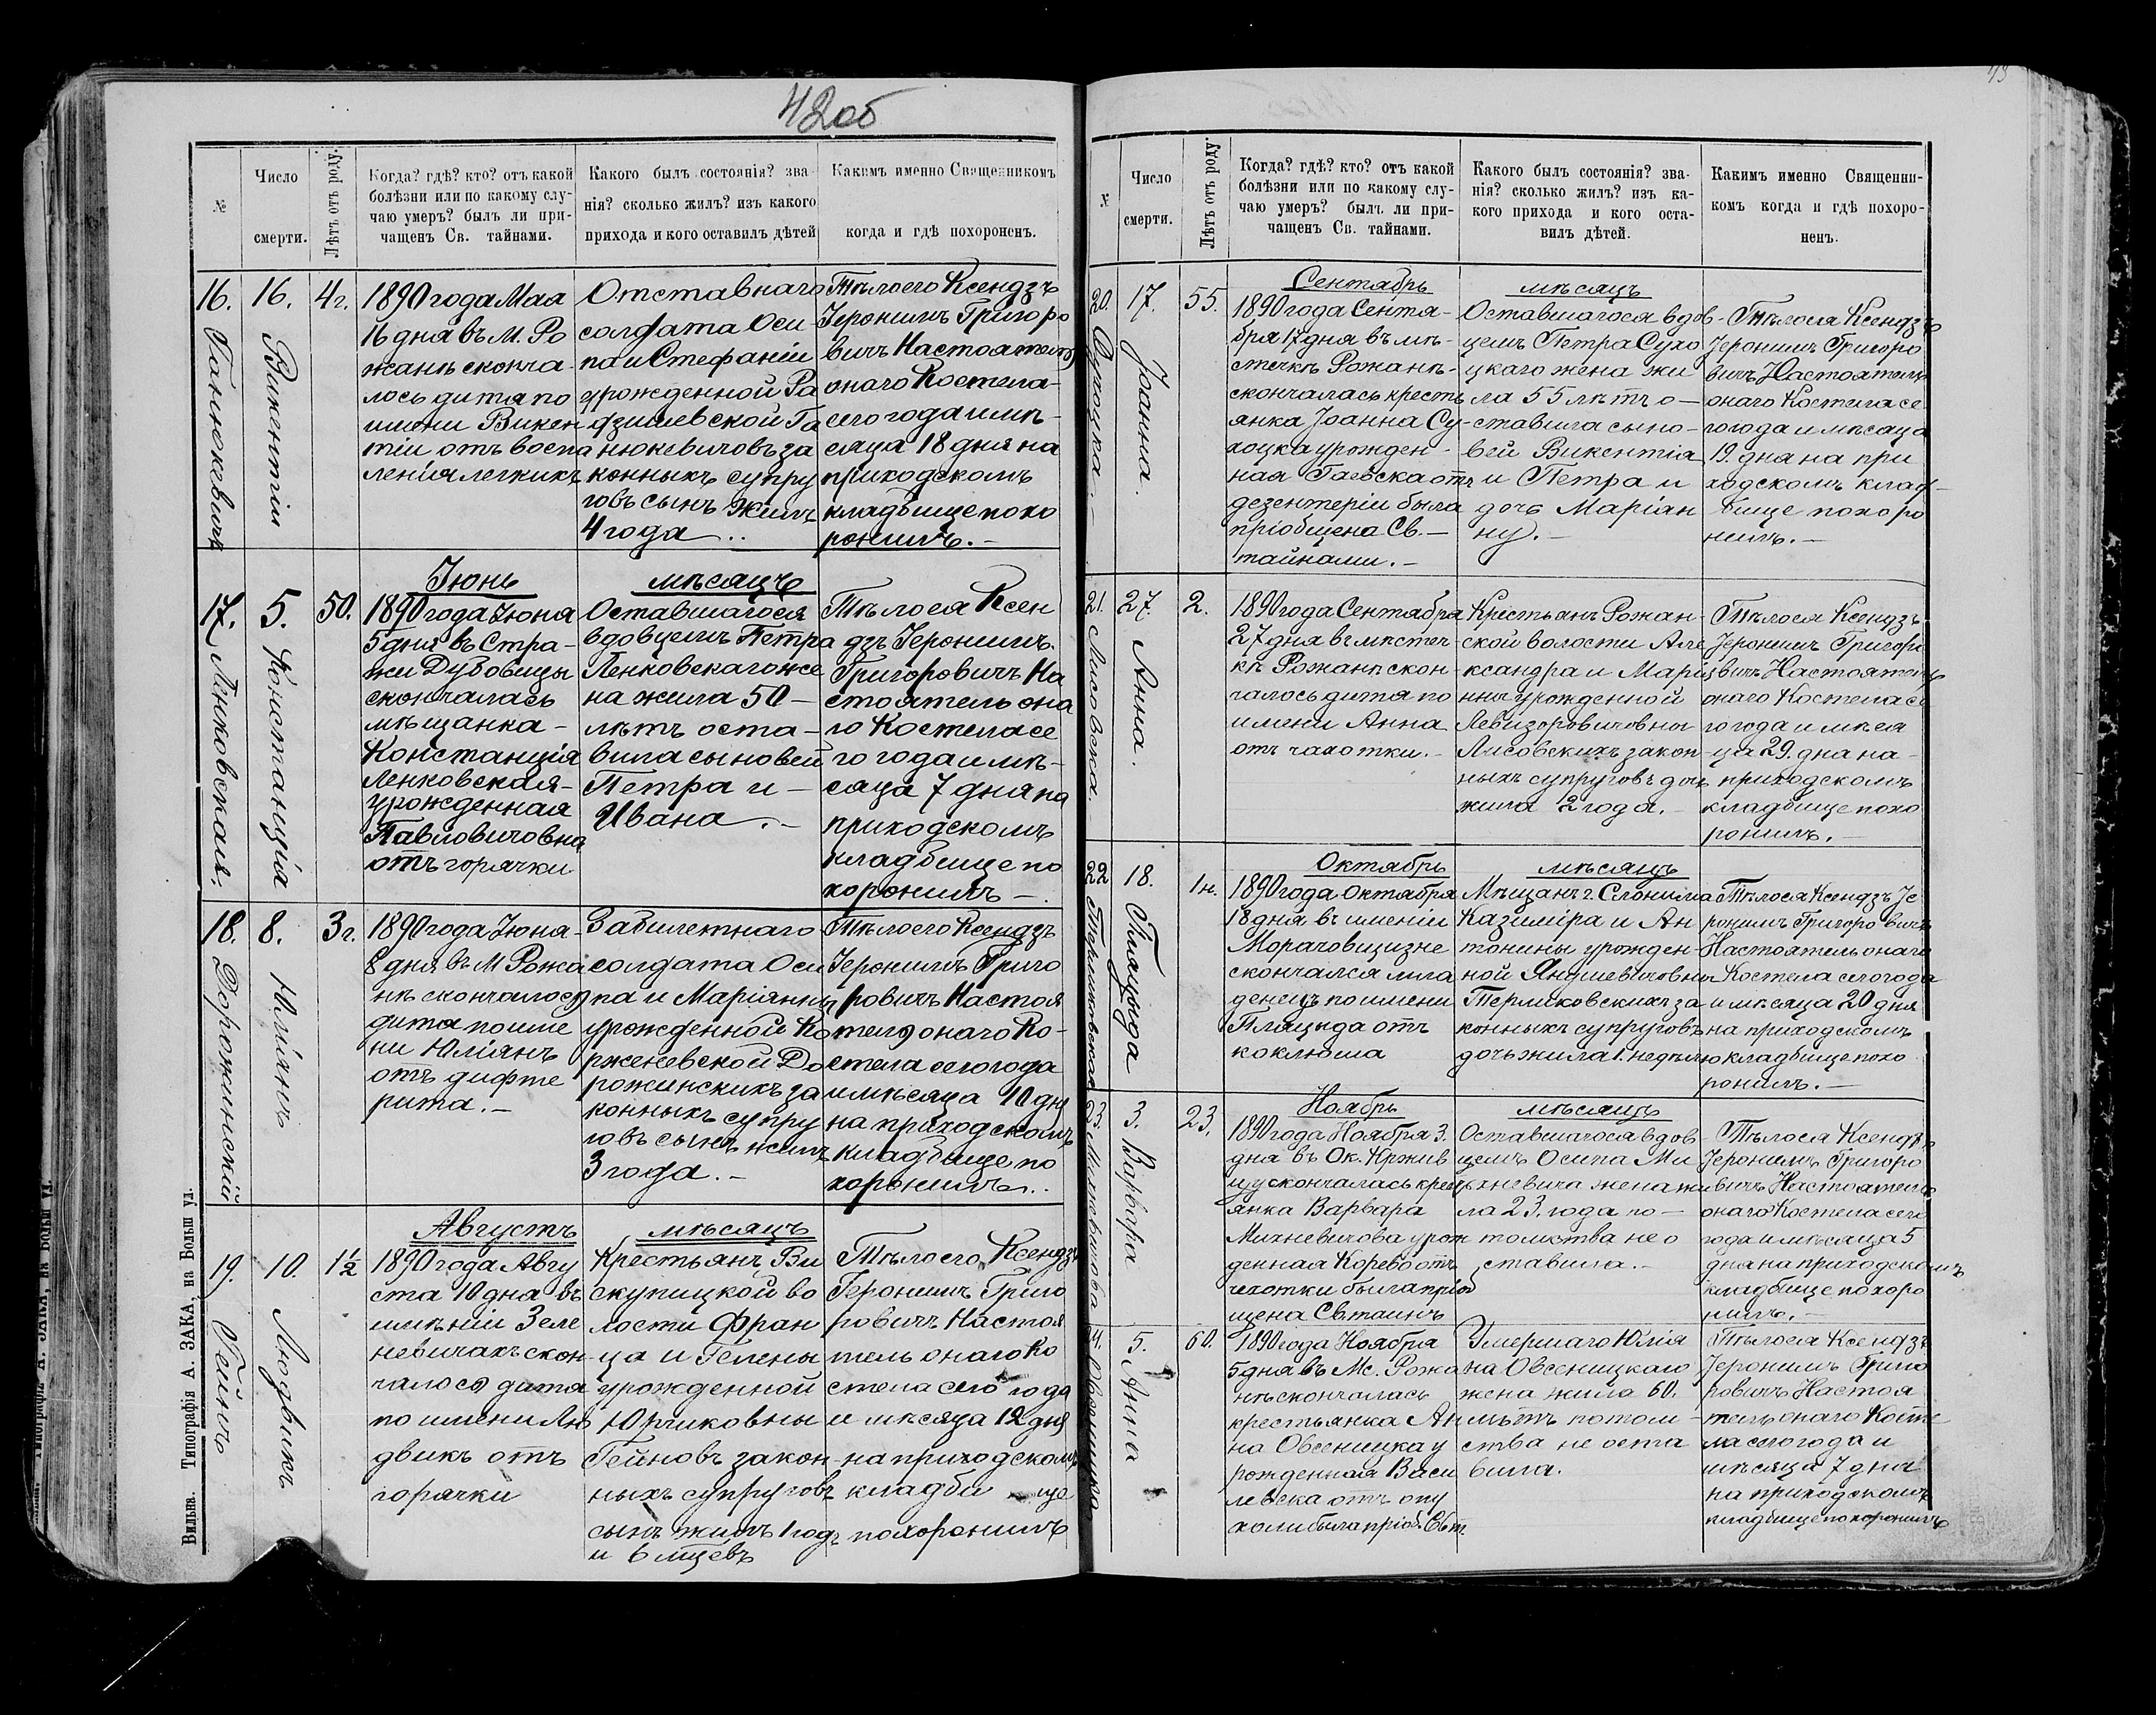 42об
№
Число
смерти.
Лѣтъ отъ роду.
Когда? гдѣ? кто? отъ какой
болѣзни или по какому слу-
чаю умеръ? былъ ли при-
чащенъ Св. тайнами.
Какого былъ состоянія? зва-
нія? сколько жилъ? изъ какого
прихода и кого оставилъ дѣтей
Какимъ именно Священникомъ
когда и гдѣ похороненъ.
16.
Ганюкевичъ
16.
Викентій
4г.
1890 года Мая
16 дня въ М. Ро
жанѣ сконча-
лось дитя по
имени Викен
тій отъ воспа
ленія легкихъ
Отставнаго
солдата Оси-
па и Стефаніи
урожденной Ра
дзишевской Га
нюкевичовъ за
конныхъ супру
говъ сынъ жилъ
4 года
Тѣло его Ксендзъ
Іеронимъ Григоро
вичъ Настоятель
онаго Костела
сего года и мѣ-
сяца 18 дня на
приходскомъ
кладбище похо
ронилъ.-
17.
Ленковская.
5.
Констанція
50.
Іюнь
1890 года Іюня
5 дня въ Стра-
жи Дубовицы
скончалась
мѣщанка-
Констанція
Ленковская-
урожденная
Павловичовна
отъ горячки
мѣсяцъ
Оставшагося
вдовцемъ Петра
Ленковскаго же
на жила 50-
лѣтъ оста-
вила сыновей
Петра и-
Ивана.-
Тѣло ея Ксен
дзъ Іеронимъ
Григоровичъ На
стоятель она
го Костела се
го года и мѣ-
сяца 7 дня на
приходскомъ
кладбище по
хоронилъ-.
18.
Дорожинскій
8.
Юліянъ
3г.
1890 года Іюня-
8 дня въ М Рожа
нѣ скончалось
дитя по име
ни Юліянъ
отъ дифте
рита.-
Забилетнаго
солдата Оси
па и Маріянны
урожденной Ко
рженевской До
рожинскихъ за
конныхъ супру
говъ сынъ жилъ
3 года.-
Тѣло его Ксендзъ
Іеронимъ Григо
ровичъ Настоя
тель онаго Ко-
стела сего года
и мѣсяца 10 дня
на приходскомъ
кладбище по
хоронилъ.
19.
Гейнъ
10.
Людвикъ
1½
Августъ
1890 года Авгу
ста 10 дня въ
имѣніи Зеле
невичахъ скон-
чалось дитя
по имени Лю
двикъ отъ
горячки
мѣсяцъ
Крестьянъ Ви
скупицкой во
лости Фран
ца и Гелены
урожденной
Юрчиковны
Гейновъ закон-
ныхъ супруговъ
сынъ жилъ 1 годъ
и 6 мцевъ
Тѣло его Ксендзъ
Геронимъ Григо
ровичъ Настоя
тель онаго Ко
стела сего года
и мѣсяца 12 дня
на приходскомъ
кладби ще
похоронилъ
Вильна. Типографія А. ЗАКА, на Больш ул.
43
№
Число
смерти.
Лѣтъ отъ роду
Когда? гдѣ? кто? отъ какой
болѣзни или по какому слу-
чаю умеръ? былъ ли при-
чащенъ Св. тайнами.
Какого былъ состоянія? зва-
нія? сколько жилъ? изъ ка-
кого прихода и кого оста-
вилъ дѣтей.
Какимъ именно Священни-
комъ когда и гдѣ похоро-
ненъ.
20.
Сухоцка.
17.
Іоанна.
55.
Сентябрь
1890 года Сентя-
бря 17 дня въ мѣ-
стечкѣ Рожанѣ-
скончалась кресть
янка Іоанна Су-
хоцка урожден-
ная Гаевска отъ
дезентеріи была
пріобщена Св.-
тайнами.-
мѣсяцъ
Оставшагося вдов-
цемъ Петра Сухо
цкаго жена жи
ла 55 лѣтъ о-
ставила сыно-
вей Викентія
и Петра и
дочь Маріян
ну.-
Тѣло ея Ксендзъ
Іеронимъ Григоро
вичъ Настоятель
онаго Костела се
го года и мѣсяца
19. дня на при
ходскомъ клад-
бище похоро
нилъ.-
21.
Лисовска.
27.
Анна.
2.
1890 года Сентября
27 дня въ мѣстеч-
кѣ Рожанѣ скон-
чалось дитя по
имени Анна
отъ чахотки.-
Крестьянъ Рожан-
ской волости Але
ксандра и Маріян
ны урожденной
Левизоровичовны
Лисовскихъ закон-
ныхъ супруговъ дочь
жила 2 года.-
Тѣло ея Ксендзъ
Іеронимъ Григоро
вичъ Настоятель
онаго Костела се
го года и мѣся
ца 29. дня на-
приходскомъ
кладбище похо
ронилъ.-
22
18.
Плацыда
1н.
Октябрь
1890 года Октября
18 дня въ имѣніи
скончался мла
денецъ по имени
Плацыда отъ
коклюша
мѣсяцъ
Мѣщанъ г. Слонима
Казиміра и Ан
тонины урожден-
ной Янушевичовны
Термиковскихъ за
конныхъ супруговъ
дочь жила 1. недѣлю
Тѣло ея Ксендзъ Іе
ронимъ Григоровичъ
Настоятель онаго
Костела сего года
и мѣсяца 20 дня
на приходскомъ
кладбище похо
ронилъ.-
23.
Михневичова
3.
Варвара
23.
Ноябрь
1890 года Ноября 3.
дня въ Ок.
скончалась крес
янка Варвара
Михневичова урож
денная Корево отъ
чахотки была пріоб
щена Св. таинъ
мѣсяцъ
Оставшагося вдов-
цемъ Осипа Ми
хневича жена жи
ла 23. года по-
томства не о
ставила.-
Тѣло ея Ксендзъ
Іеронимъ Григоро
вичъ Настоятель
онаго Костела сего
года и мѣсяца 5
дня на приходскомъ
кладбище похоро
нилъ.-
24.
Овсеницка
5.
Анна
60.
1890 года Ноября
5 дня въ Мс. Рожа
нѣ скончалась
крестьянка Ан
на Овсеницка у
рожденная Васи
левска отъ опу
холи была пріоб. Св.т.
Умершаго Юлія
на Овсеницкаго
жена жила 60.
лѣтъ потом-
ства не оста
вила.
Тѣло ея Ксендзъ
Іеронимъ Григо
ровичъ Настоя
тель онаго Косте
ла сего года и
мѣсяца 7 дня
на приходскомъ
кладбище похоронилъ